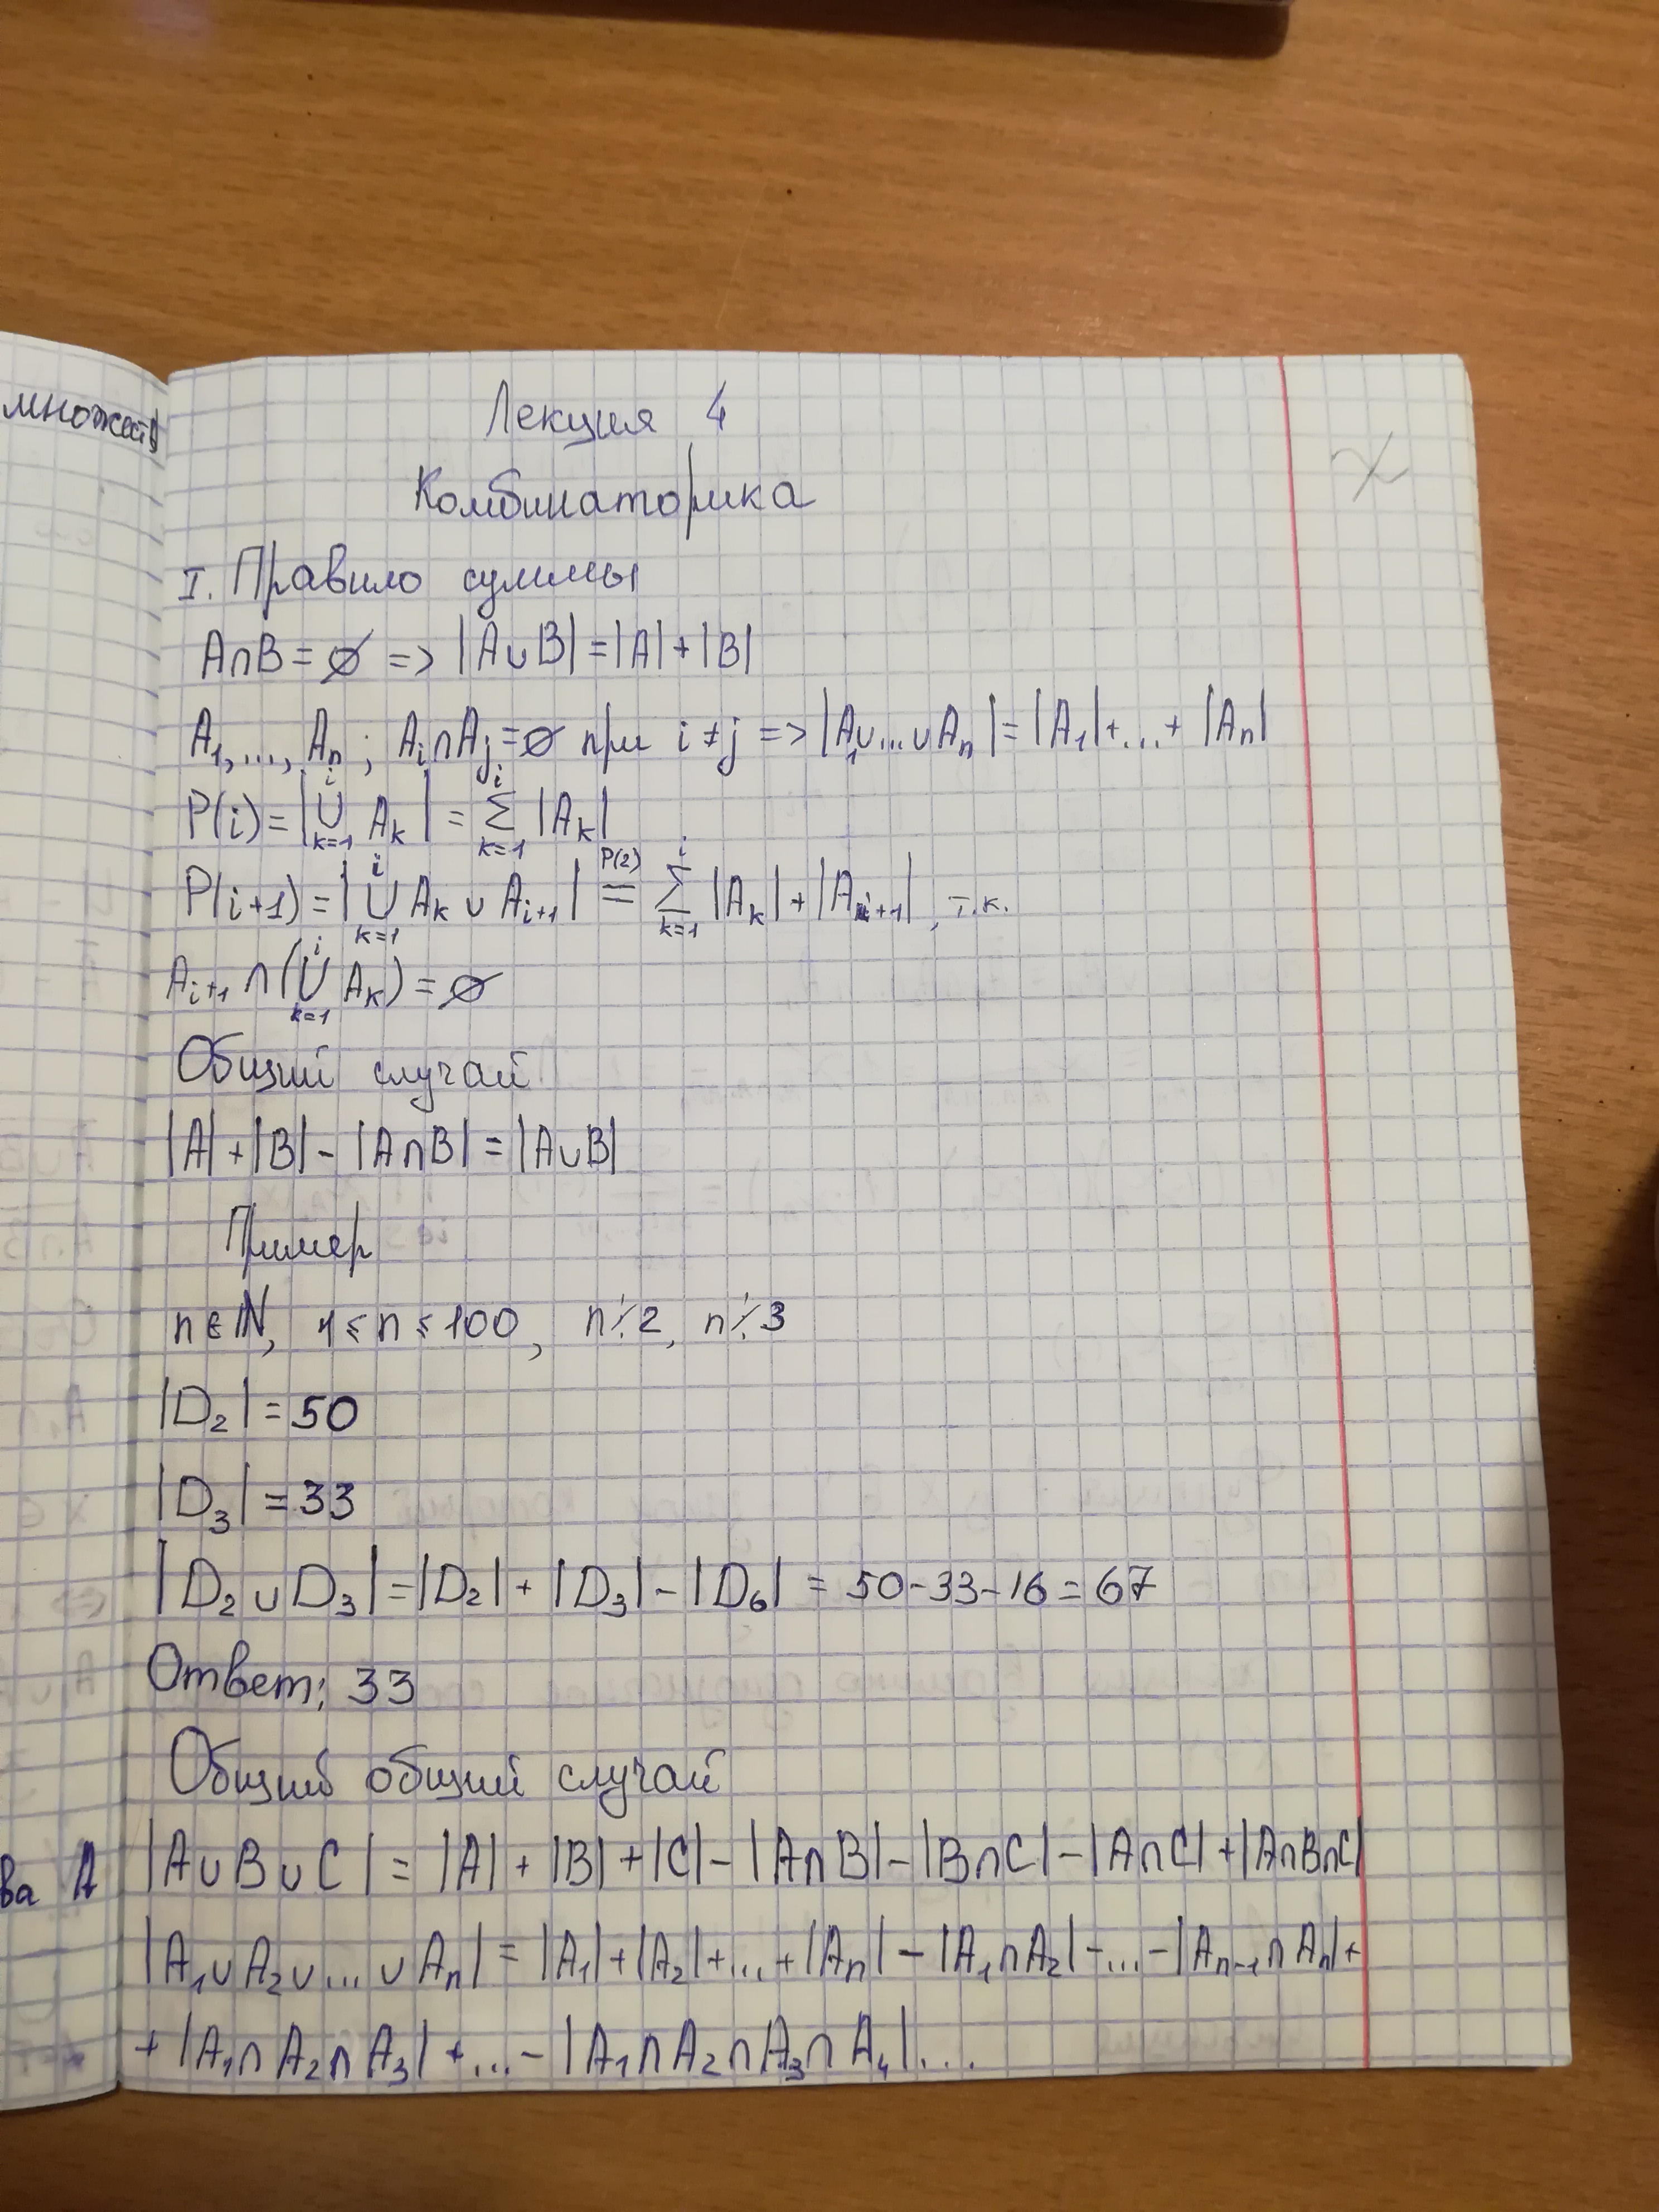 множеств
Лекция 4
Комбинаторика
I. Правило суммы
A∩B = ∅ => |A∪B| = |A| + |B|
A₁, ..., Aₙ ; Aᵢ∩Aⱼ = ∅ при i ≠ j => |A₁∪...∪Aₙ| = |A₁| + ... + |Aₙ|
P(i) = |⋃_{k=1}^{i} Aₖ| = ∑_{k=1}^{i} |Aₖ|
P(i+1) = |⋃_{k=1}^{i} Aₖ ∪ Aᵢ₊₁| =^{P(2)} ∑_{k=1}^{i} |Aₖ| + |Aᵢ₊₁|, т.к.
Aᵢ₊₁ ∩ (⋃_{k=1}^{i} Aₖ) = ∅
Общий случай
|A| + |B| - |A∩B| = |A∪B|
Пример
n ∈ ℕ, 1 ≤ n ≤ 100, n⋮̸2, n⋮̸3
|D₂| = 50
|D₃| = 33
|D₂ ∪ D₃| = |D₂| + |D₃| - |D₆| = 50-33-16 = 67
Ответ: 33
Общий общий случай
ва A
|A∪B∪C| = |A| + |B| + |C| - |A∩B| - |B∩C| - |A∩C| + |A∩B∩C|
|A₁∪A₂∪...∪Aₙ| = |A₁| + |A₂| + ... + |Aₙ| - |A₁∩A₂| - ... - |Aₙ₋₁∩Aₙ| +
+ |A₁∩A₂∩A₃| + ... - |A₁∩A₂∩A₃∩A₄| ....